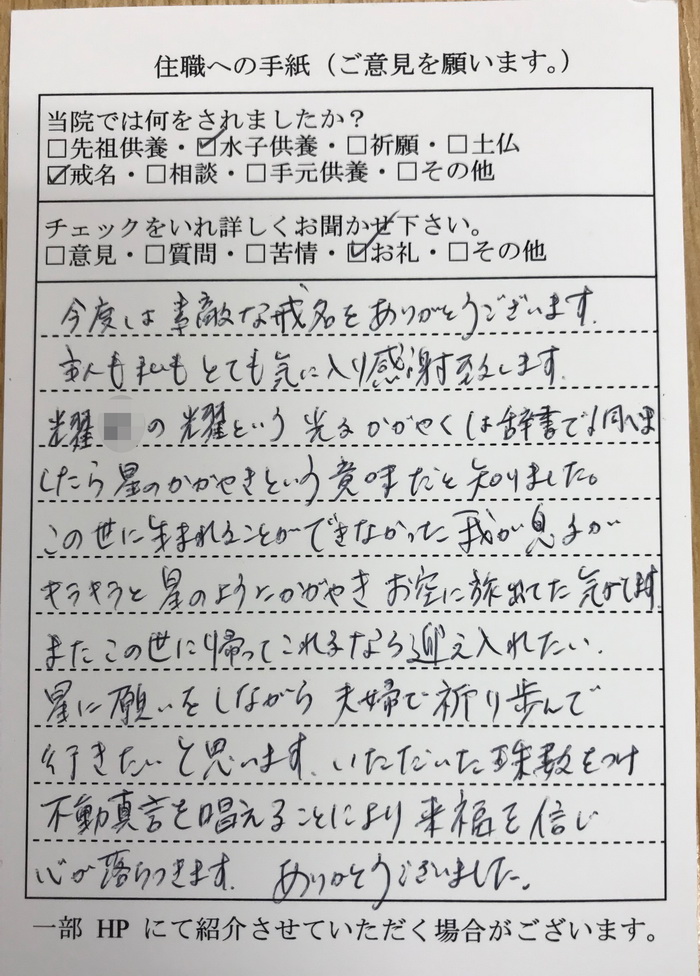 住職への手紙（ご意見を願います。）
当院では何をされましたか？
□先祖供養・☑水子供養・□祈願・□土仏
☑戒名・□相談・□手元供養・□その他
チェックをいれ詳しくお聞かせ下さい。
□意見・□質問・□苦情・☑お礼・□その他
今度は素敵な戒名をありがとうございます.
主人も私もとても気に入り感謝致します.
光耀 の光耀という 光る かがやくは辞書で
したら星のかがやきという意味だと知りました。
この世に生まれることができなかった我が息子が
キラキラと星のようにかがやき お空に旅出てた気がします
またこの世に帰ってこれるなら迎え入れたい.
星に願いをしながら 夫婦で祈り歩んで
行きたいと思います. いただいた珠数をつけ
不動真言を唱えることにより来福を信じ
心が落ちつきます. ありがとうございました。
一部 HP にて紹介させていただく場合がございます。